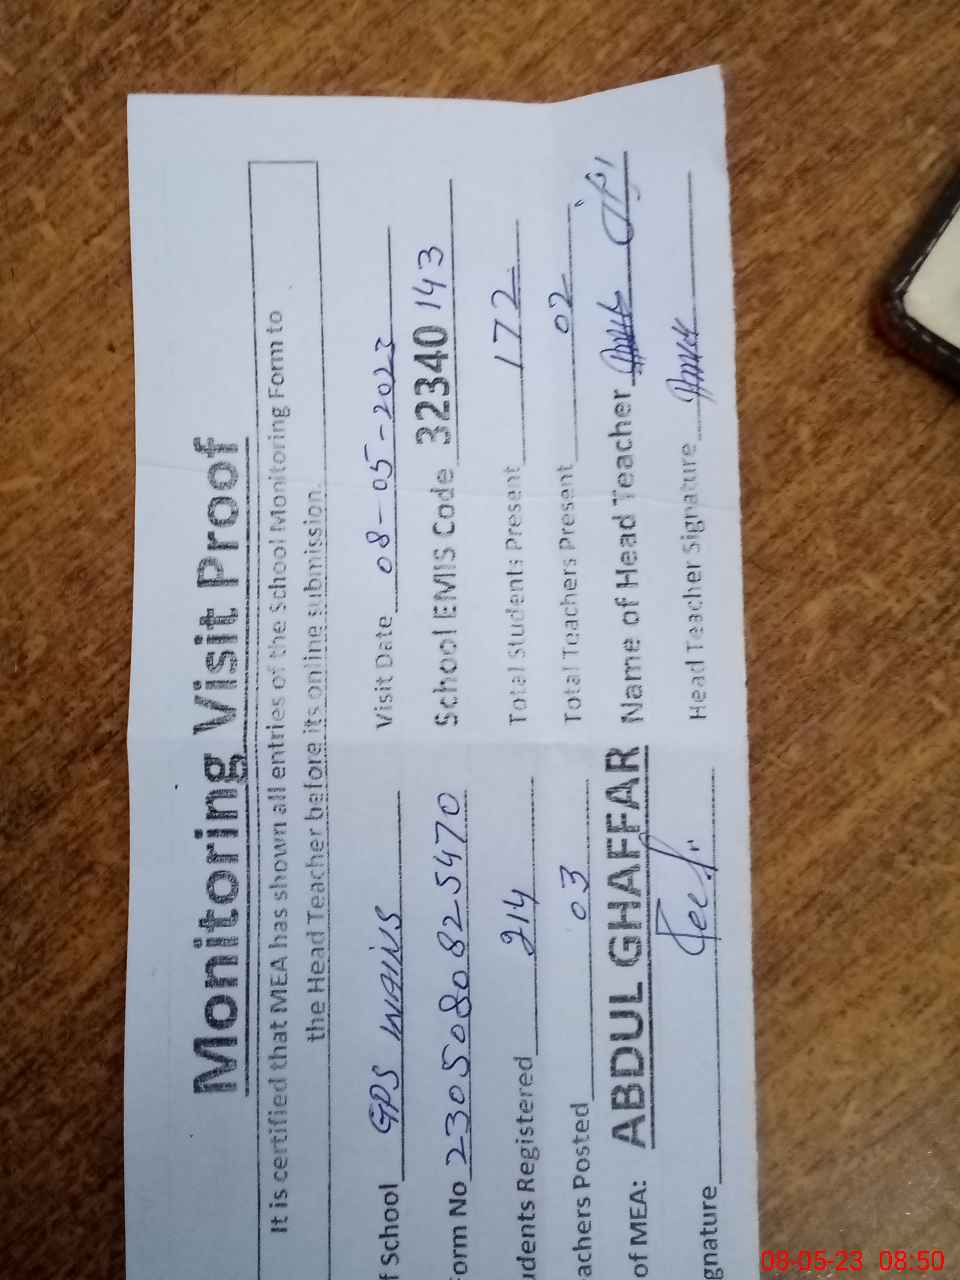 Monitoring Visit Proof
It is certified that MEA has shown all entries of the School Monitoring Form to
the Head Teacher before its online submission.
f School GPS WAINS Visit Date 08-05-2023
orm No 2305080825470 School EMIS Code 32340143
udents Registered 214 Total Students Present 172
achers Posted 03 Total Teachers Present 02
of MEA: ABDUL GHAFFAR Name of Head Teacher
gnature Head Teacher Signature
08-05-23 08:50